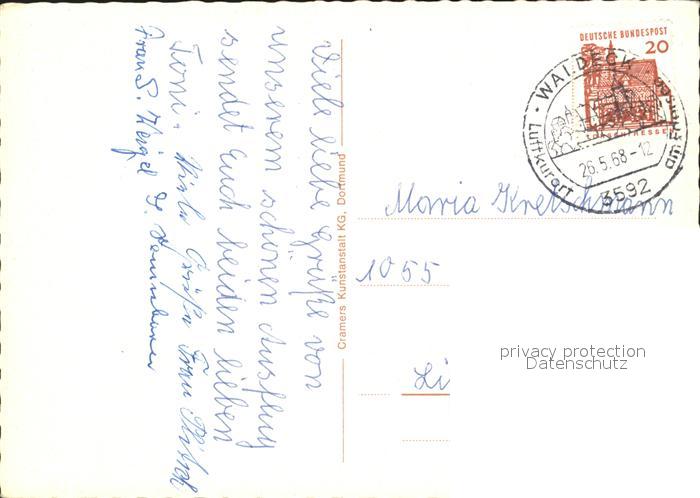 Viele liebe Grüße von
unserem schönen Ausflug
sendet Euch beiden lieben
Toni. Viele Grüße Frau
Frau S.
Cramers Kunstanstalt KG, Dortmund
DEUTSCHE BUNDESPOST
20
WALDECK
Luftkurort am Edersee
26.5.68-12
3592
Maria Kretschmann
1055
Li
privacy protection
Datenschutz